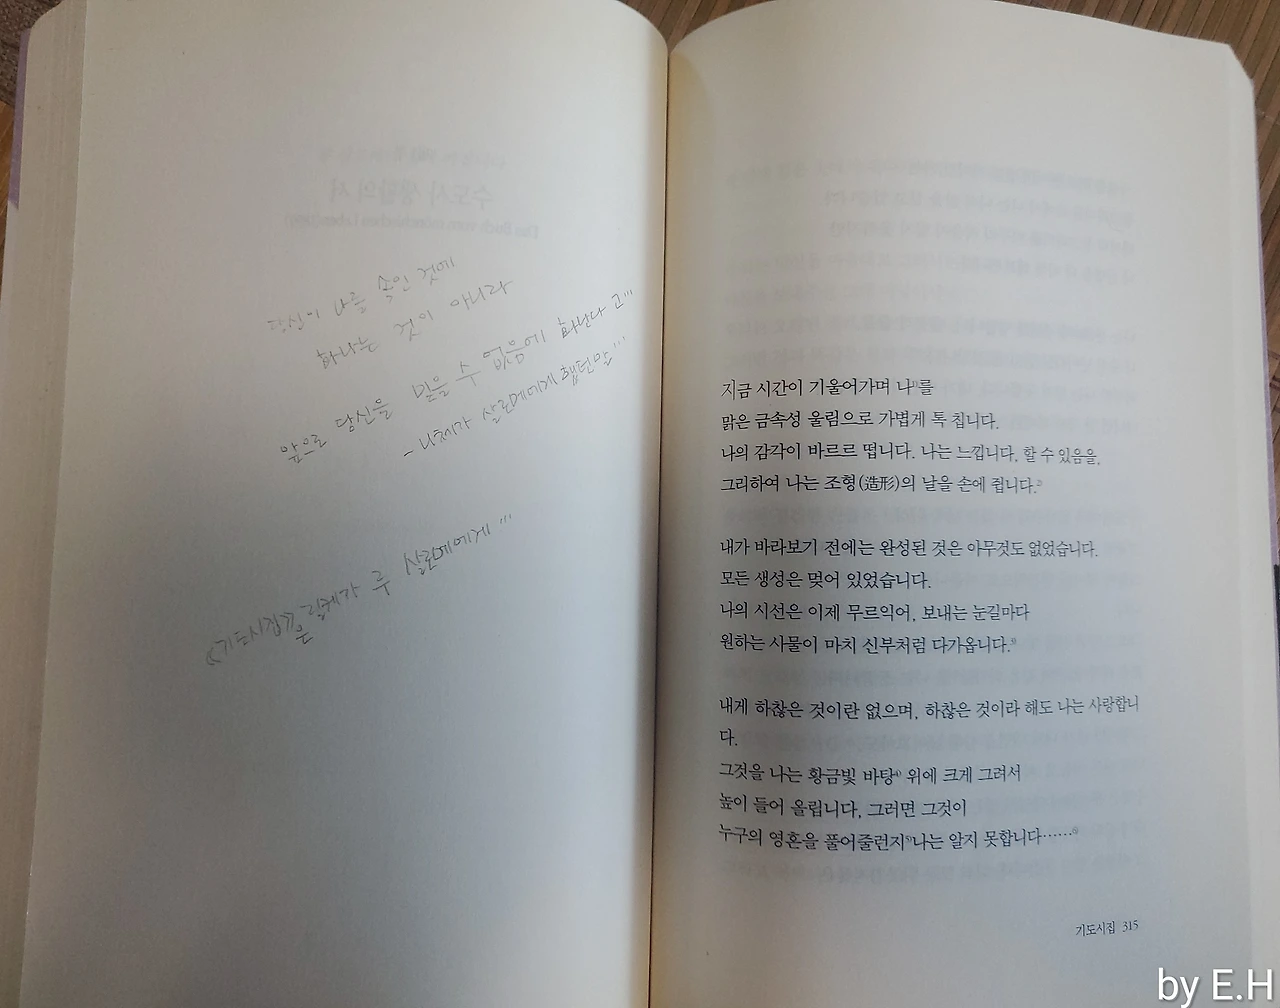 수도사 생활의 서
당신이 나를 속인 것에
화나는 것이 아니라
앞으로 당신을 믿을 수 없음에 화난다고...
- 니체가 살로메에게 했던 말...
《기도시집》은 릴케가 루 살로메에게...
지금 시간이 기울어가며 나¹⁾를
맑은 금속성 울림으로 가볍게 톡 칩니다.
나의 감각이 바르르 떱니다. 나는 느낍니다. 할 수 있음을,
그리하여 나는 조형(造形)의 날을 손에 쥡니다.²⁾
내가 바라보기 전에는 완성된 것은 아무것도 없었습니다.
모든 생성은 멎어 있었습니다.
나의 시선은 이제 무르익어, 보내는 눈길마다
원하는 사물이 마치 신부처럼 다가옵니다.³⁾
내게 하찮은 것이란 없으며, 하찮은 것이라 해도 나는 사랑합니
다.
그것을 나는 황금빛 바탕⁴⁾ 위에 크게 그려서
높이 들어 올립니다, 그러면 그것이
누구의 영혼을 풀어줄런지⁵⁾ 나는 알지 못합니다……⁶⁾
기도시집 315
by E.H